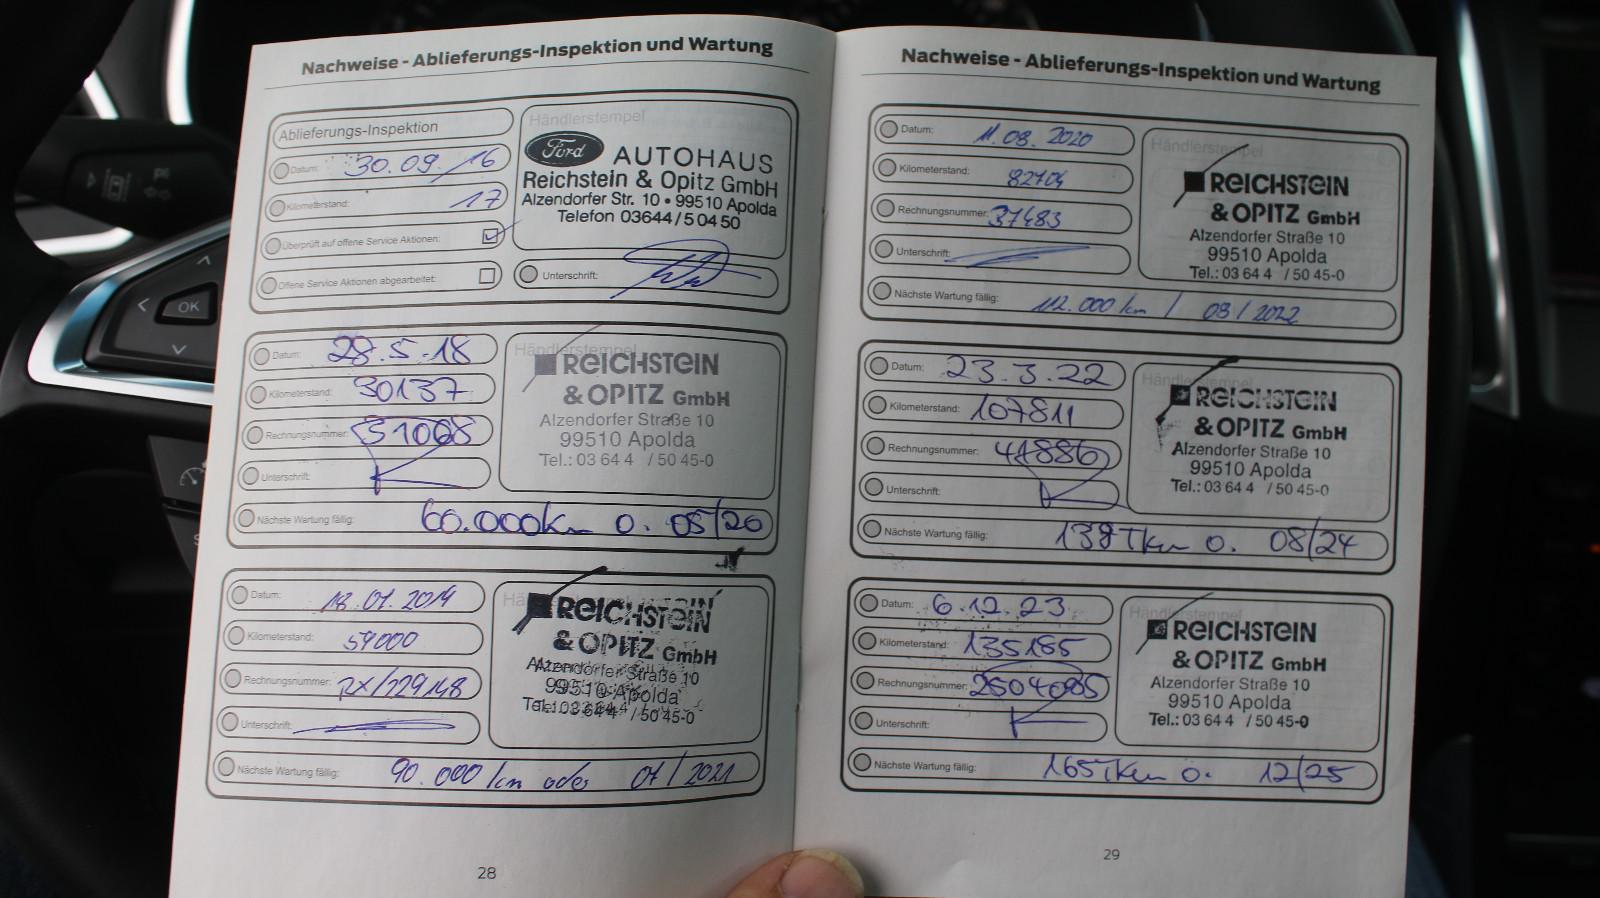 Nachweise - Ablieferungs-Inspektion und Wartung
Ablieferungs-Inspektion
Datum: 30.09./16
Kilometerstand: 17
Überprüft auf offene Service Aktionen:
Offene Service Aktionen abgearbeitet:
Händlerstempel
Ford AUTOHAUS
Reichstein & Opitz GmbH
Alzendorfer Str. 10 • 99510 Apolda
Telefon 03644/50450
Unterschrift:
Datum: 28.5.18
Kilometerstand: 30137
Rechnungsnummer: 31068
Unterschrift:
Händlerstempel
REICHSTEIN
& OPITZ GmbH
Alzendorfer Straße 10
99510 Apolda
Tel.: 03 64 4 / 50 45-0
Nächste Wartung fällig: 60.000km o. 05/20
Datum: 18.01.2019
Kilometerstand: 59000
Rechnungsnummer:
Unterschrift:
REICHSTEIN
& OPITZ GmbH
Alzendorfer Straße 10
99510 Apolda
Tel.: 03 64 4 / 50 45-0
Nächste Wartung fällig: 90.000 km oder 01/2021
28
Nachweise - Ablieferungs-Inspektion und Wartung
Datum: 11.08.2020
Kilometerstand: 82704
Rechnungsnummer: 37483
Unterschrift:
Händlerstempel
REICHSTEIN
& OPITZ GmbH
Alzendorfer Straße 10
99510 Apolda
Tel.: 03 64 4 / 50 45-0
Nächste Wartung fällig: 112.000 km / 08/2022
Datum: 23.3.22
Kilometerstand: 107811
Rechnungsnummer: 41886
Unterschrift:
Händlerstempel
REICHSTEIN
& OPITZ GmbH
Alzendorfer Straße 10
99510 Apolda
Tel.: 03 64 4 / 50 45-0
Nächste Wartung fällig: 138Tkm o. 08/24
Datum: 6.12.23
Kilometerstand: 135185
Rechnungsnummer:
Unterschrift:
Händlerstempel
REICHSTEIN
& OPITZ GmbH
Alzendorfer Straße 10
99510 Apolda
Tel.: 03 64 4 / 50 45-0
Nächste Wartung fällig: 165Tkm o. 12/25
29
OK